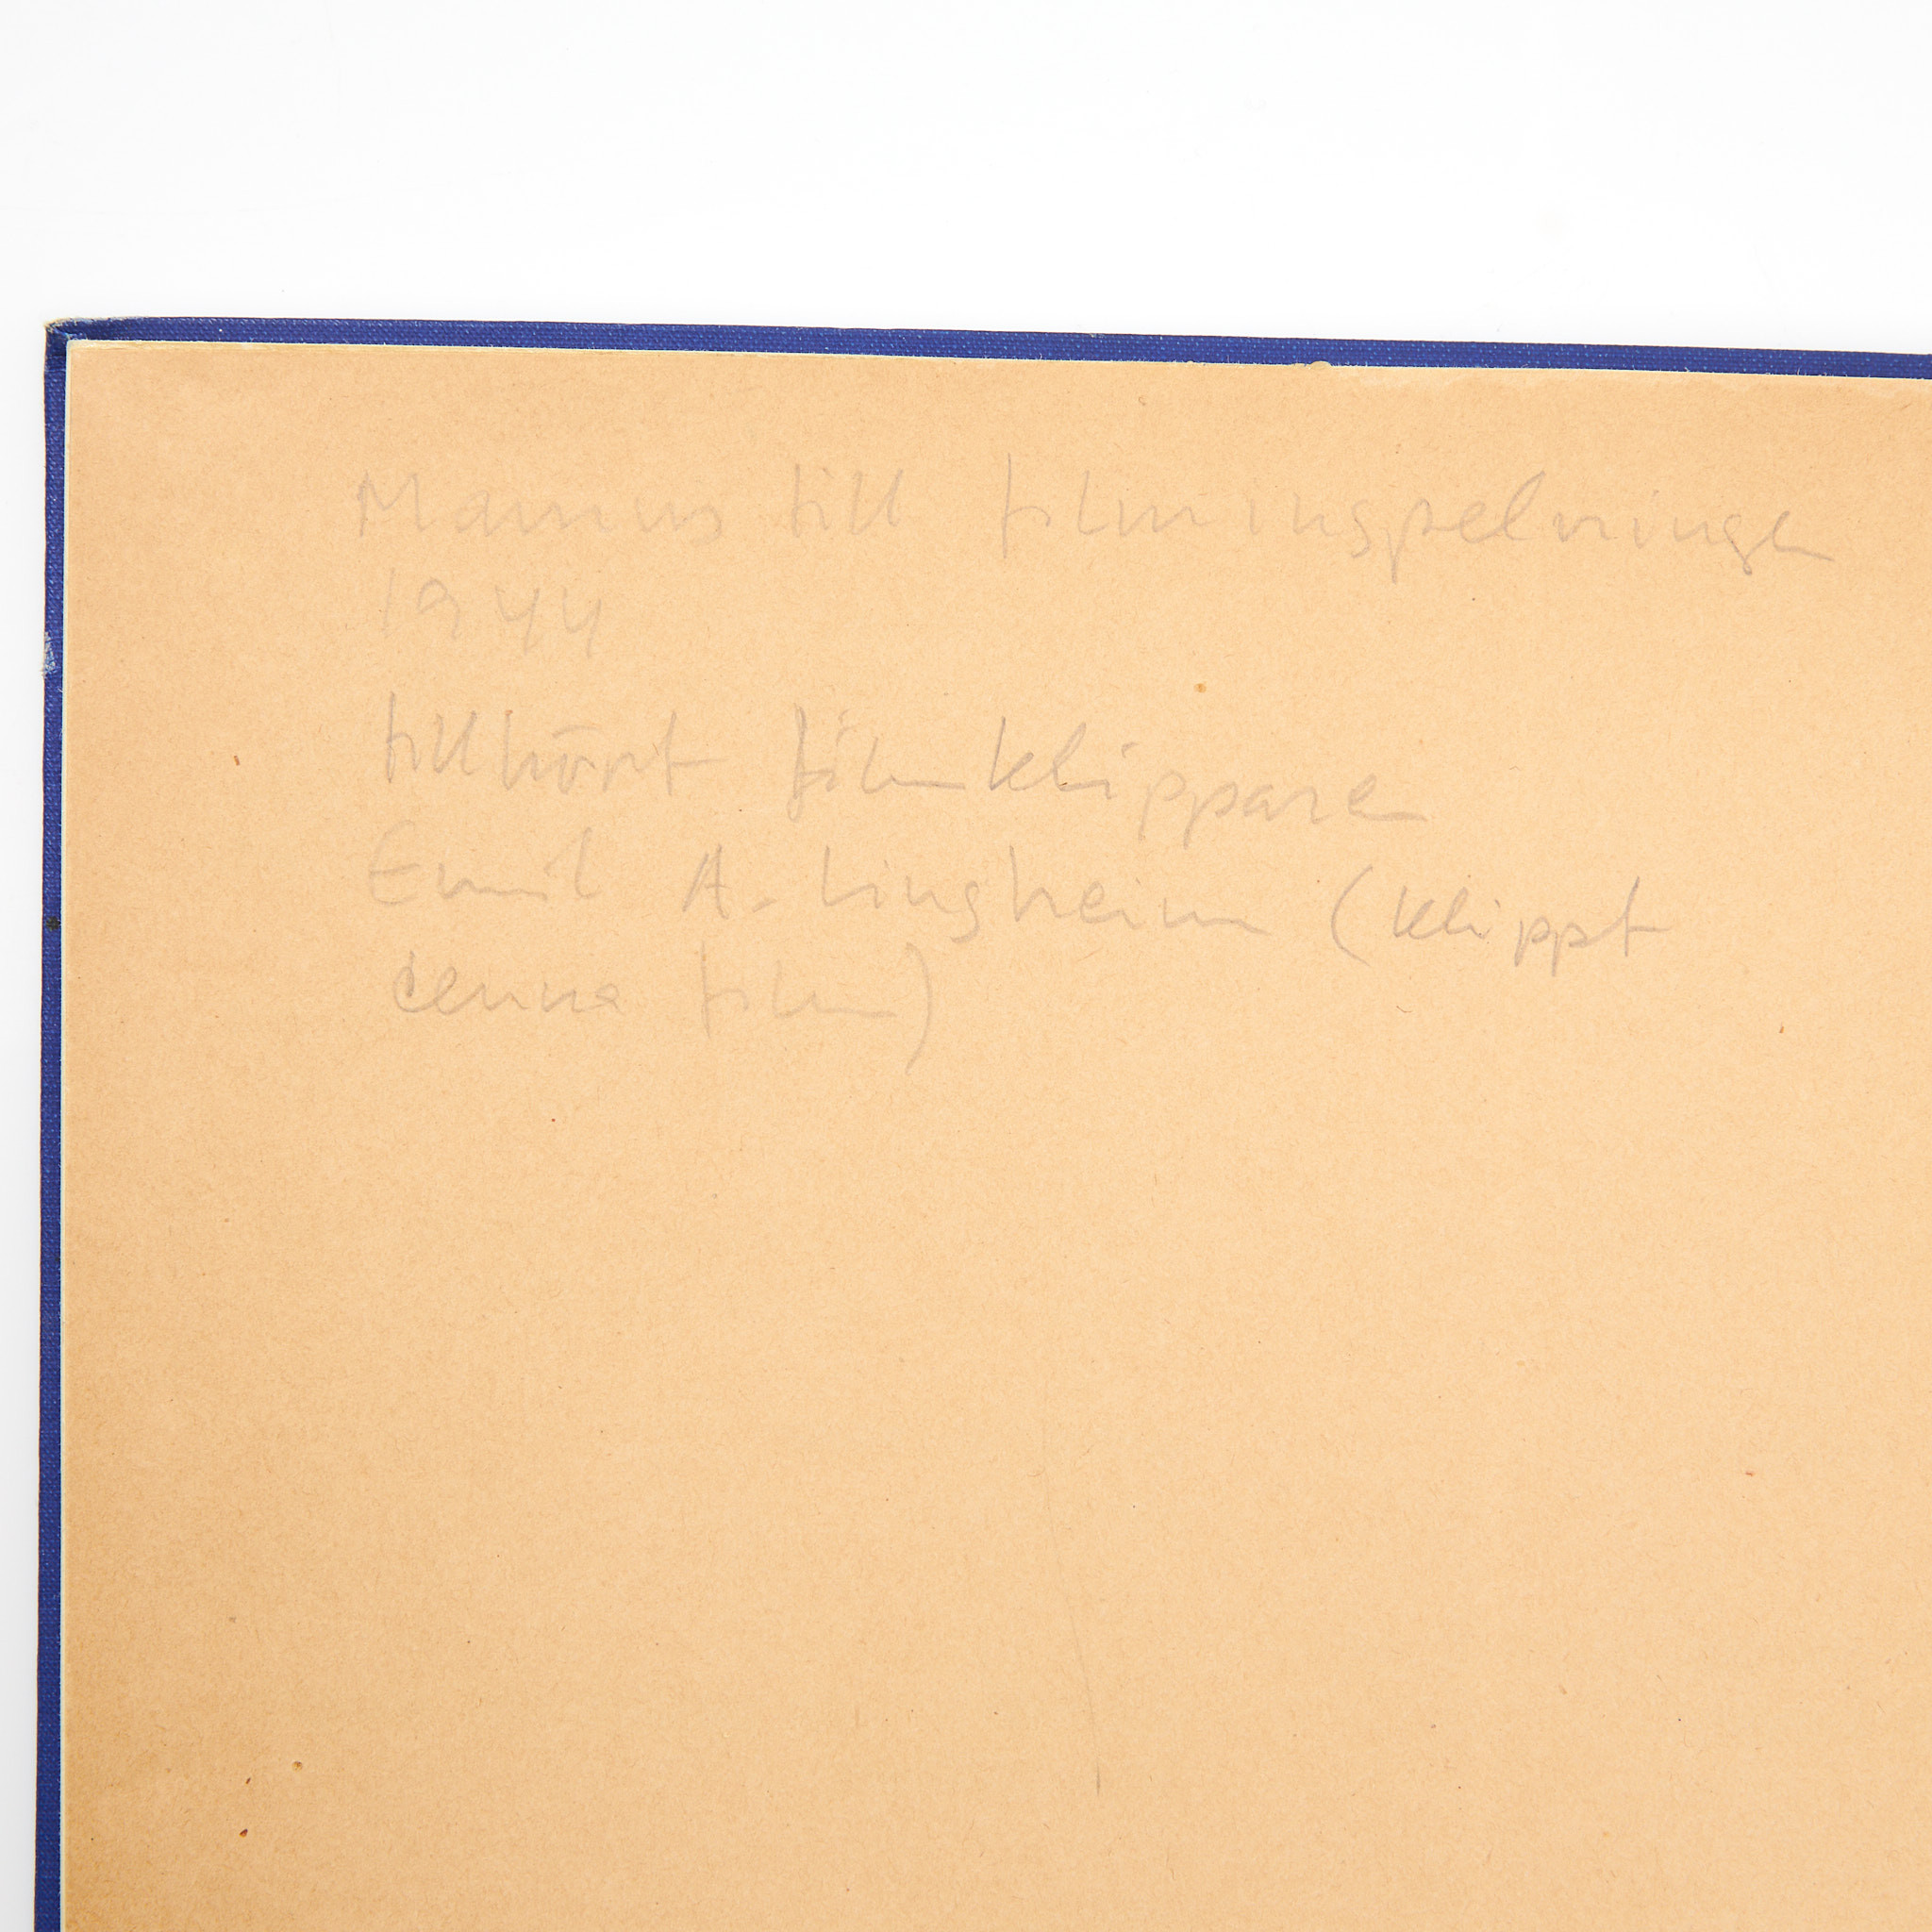 Manus till filminspelningen
1944
tillhört filmklippare
Emil A. Lingheim (klippt
denna film)